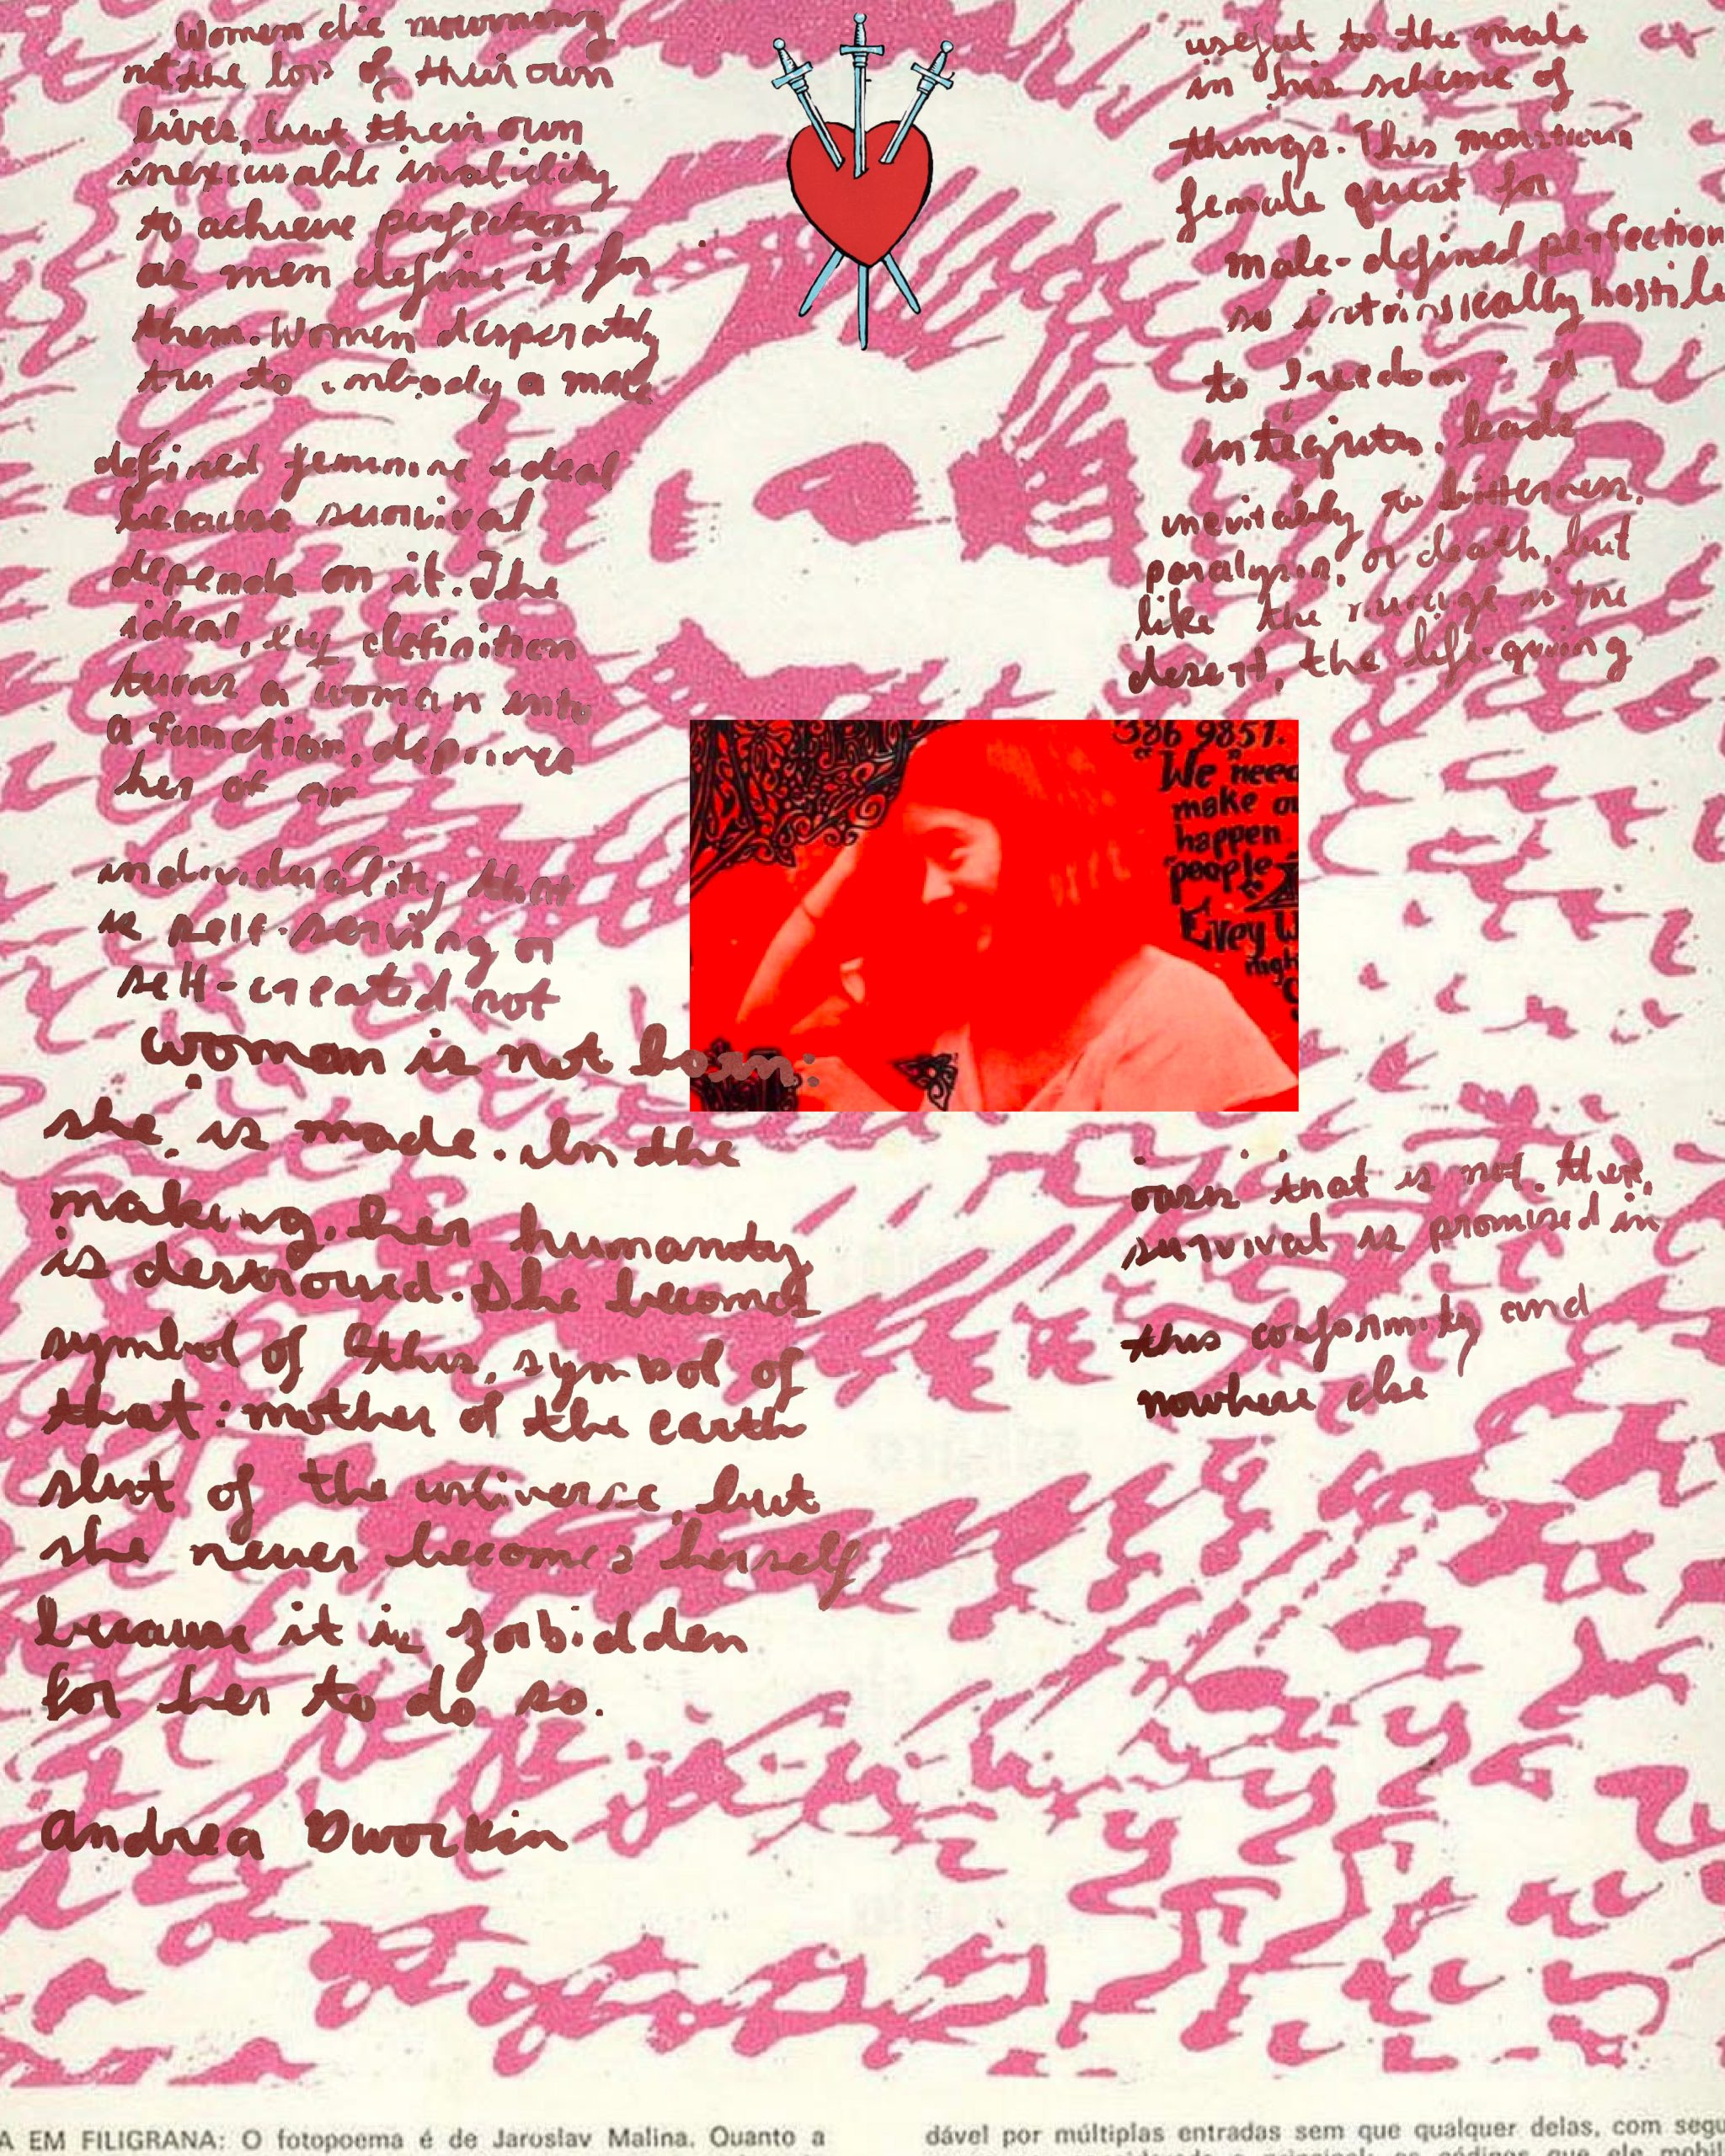 Women die mourning
not the loss of their own
lives, but their own
inexcusable inability
to achieve perfection
as men define it for
them. Women desperately
try to embody a male
defined feminine ideal
because survival
depends on it. The
ideal, by definition
turns a woman into
a function, deprives
her of any
individuality that
is self-serving or
self-created not
useful to the male
in his scheme of
things. This monstrous
female quest for
male-defined perfection
so intrinsically hostile
to freedom
integrity, leads
inevitably to bitterness,
paralysis, or death, but
like the mirage in the
desert, the life-giving
oasis that is not there,
survival is promised in
this conformity and
nowhere else
386 9851.
"We need
make ou
happen
"people
Livey W
nigh
woman is not born:
she is made. In the
making, her humanity
is destroyed. She becomes
symbol of this, symbol of
that: mother of the earth
slut of the universe, but
she never becomes herself
because it is forbidden
for her to do so.
Andrea Dworkin
A EM FILIGRANA: O fotopoema é de Jaroslav Malina. Quanto a
dável por múltiplas entradas sem que qualquer delas, com segu